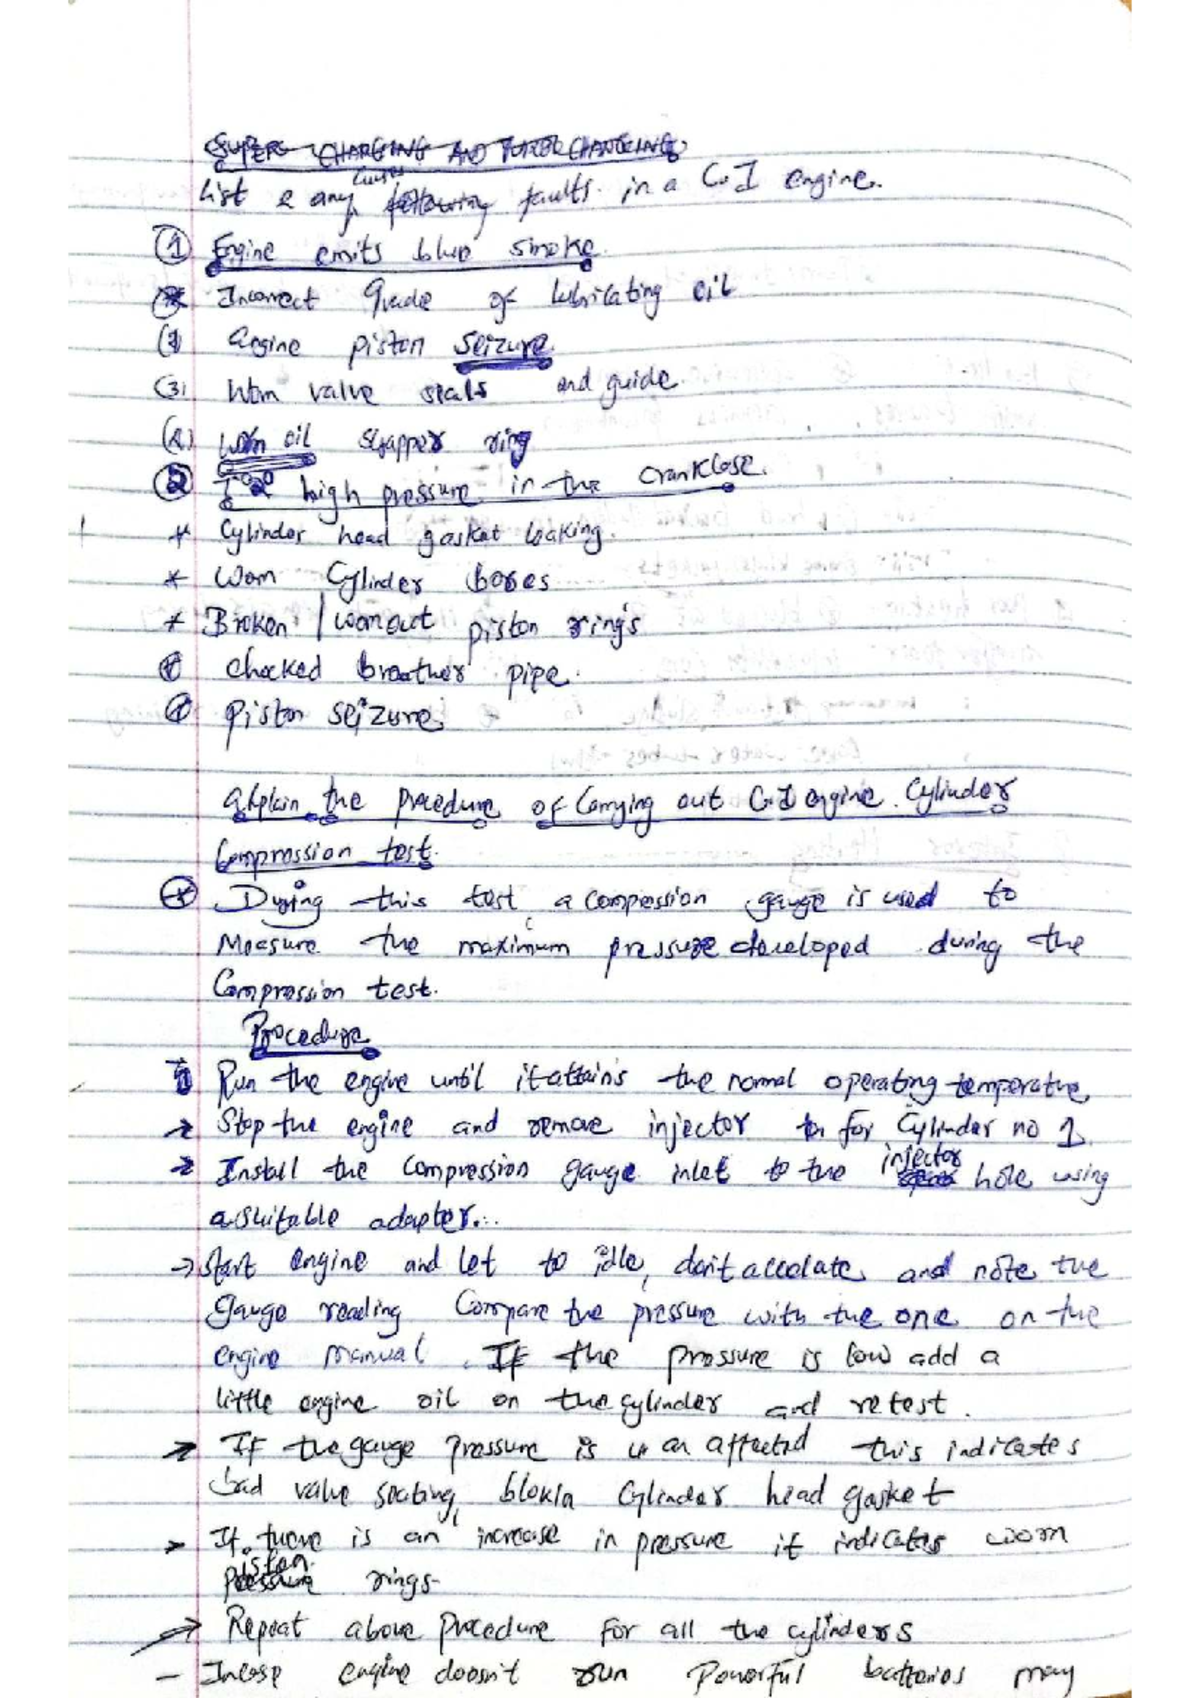 SUPER CHARGING AND TURBO CHARGING
List 2 any causes following faults in a C.I engine.
① Engine emits blue smoke.
Incorrect Grade of lubricating oil
Engine piston seizure.
(3) Worn valve seals and guide
Worn oil scrapper ring
② high pressure in the crankcase.
* Cylinder head gasket leaking.
* Worn Cylinder bores
* Broken / wornout piston rings
chocked breather pipe.
piston seizure.
Explain the procedure of Carrying out C.I engine Cylinder
Compression test.
During this test, a compession gauge is used to
Measure the maximum pressure developed during the
Compression test.
Procedure
Run the engine until it attains the normal operating temperature
→ Stop the engine and remove injector for Cylinder no 1.
→ Install the compression gauge inlet to the injector hole using
a suitable adapter...
→ start engine and let to idle, don't accelate and note the
gauge reading Compare the pressure with the one on the
engine manual. If the pressure is low add a
little engine oil on the cylinder and retest.
→ If the gauge pressure is un affected this indicates
bad valve seating, blokin Cylinder head gasket
> If there is an increase in pressure it indicates worn
piston rings-
→ Repeat above procedure for all the cylinders
- Incase engine doesn't run powerful batteries may